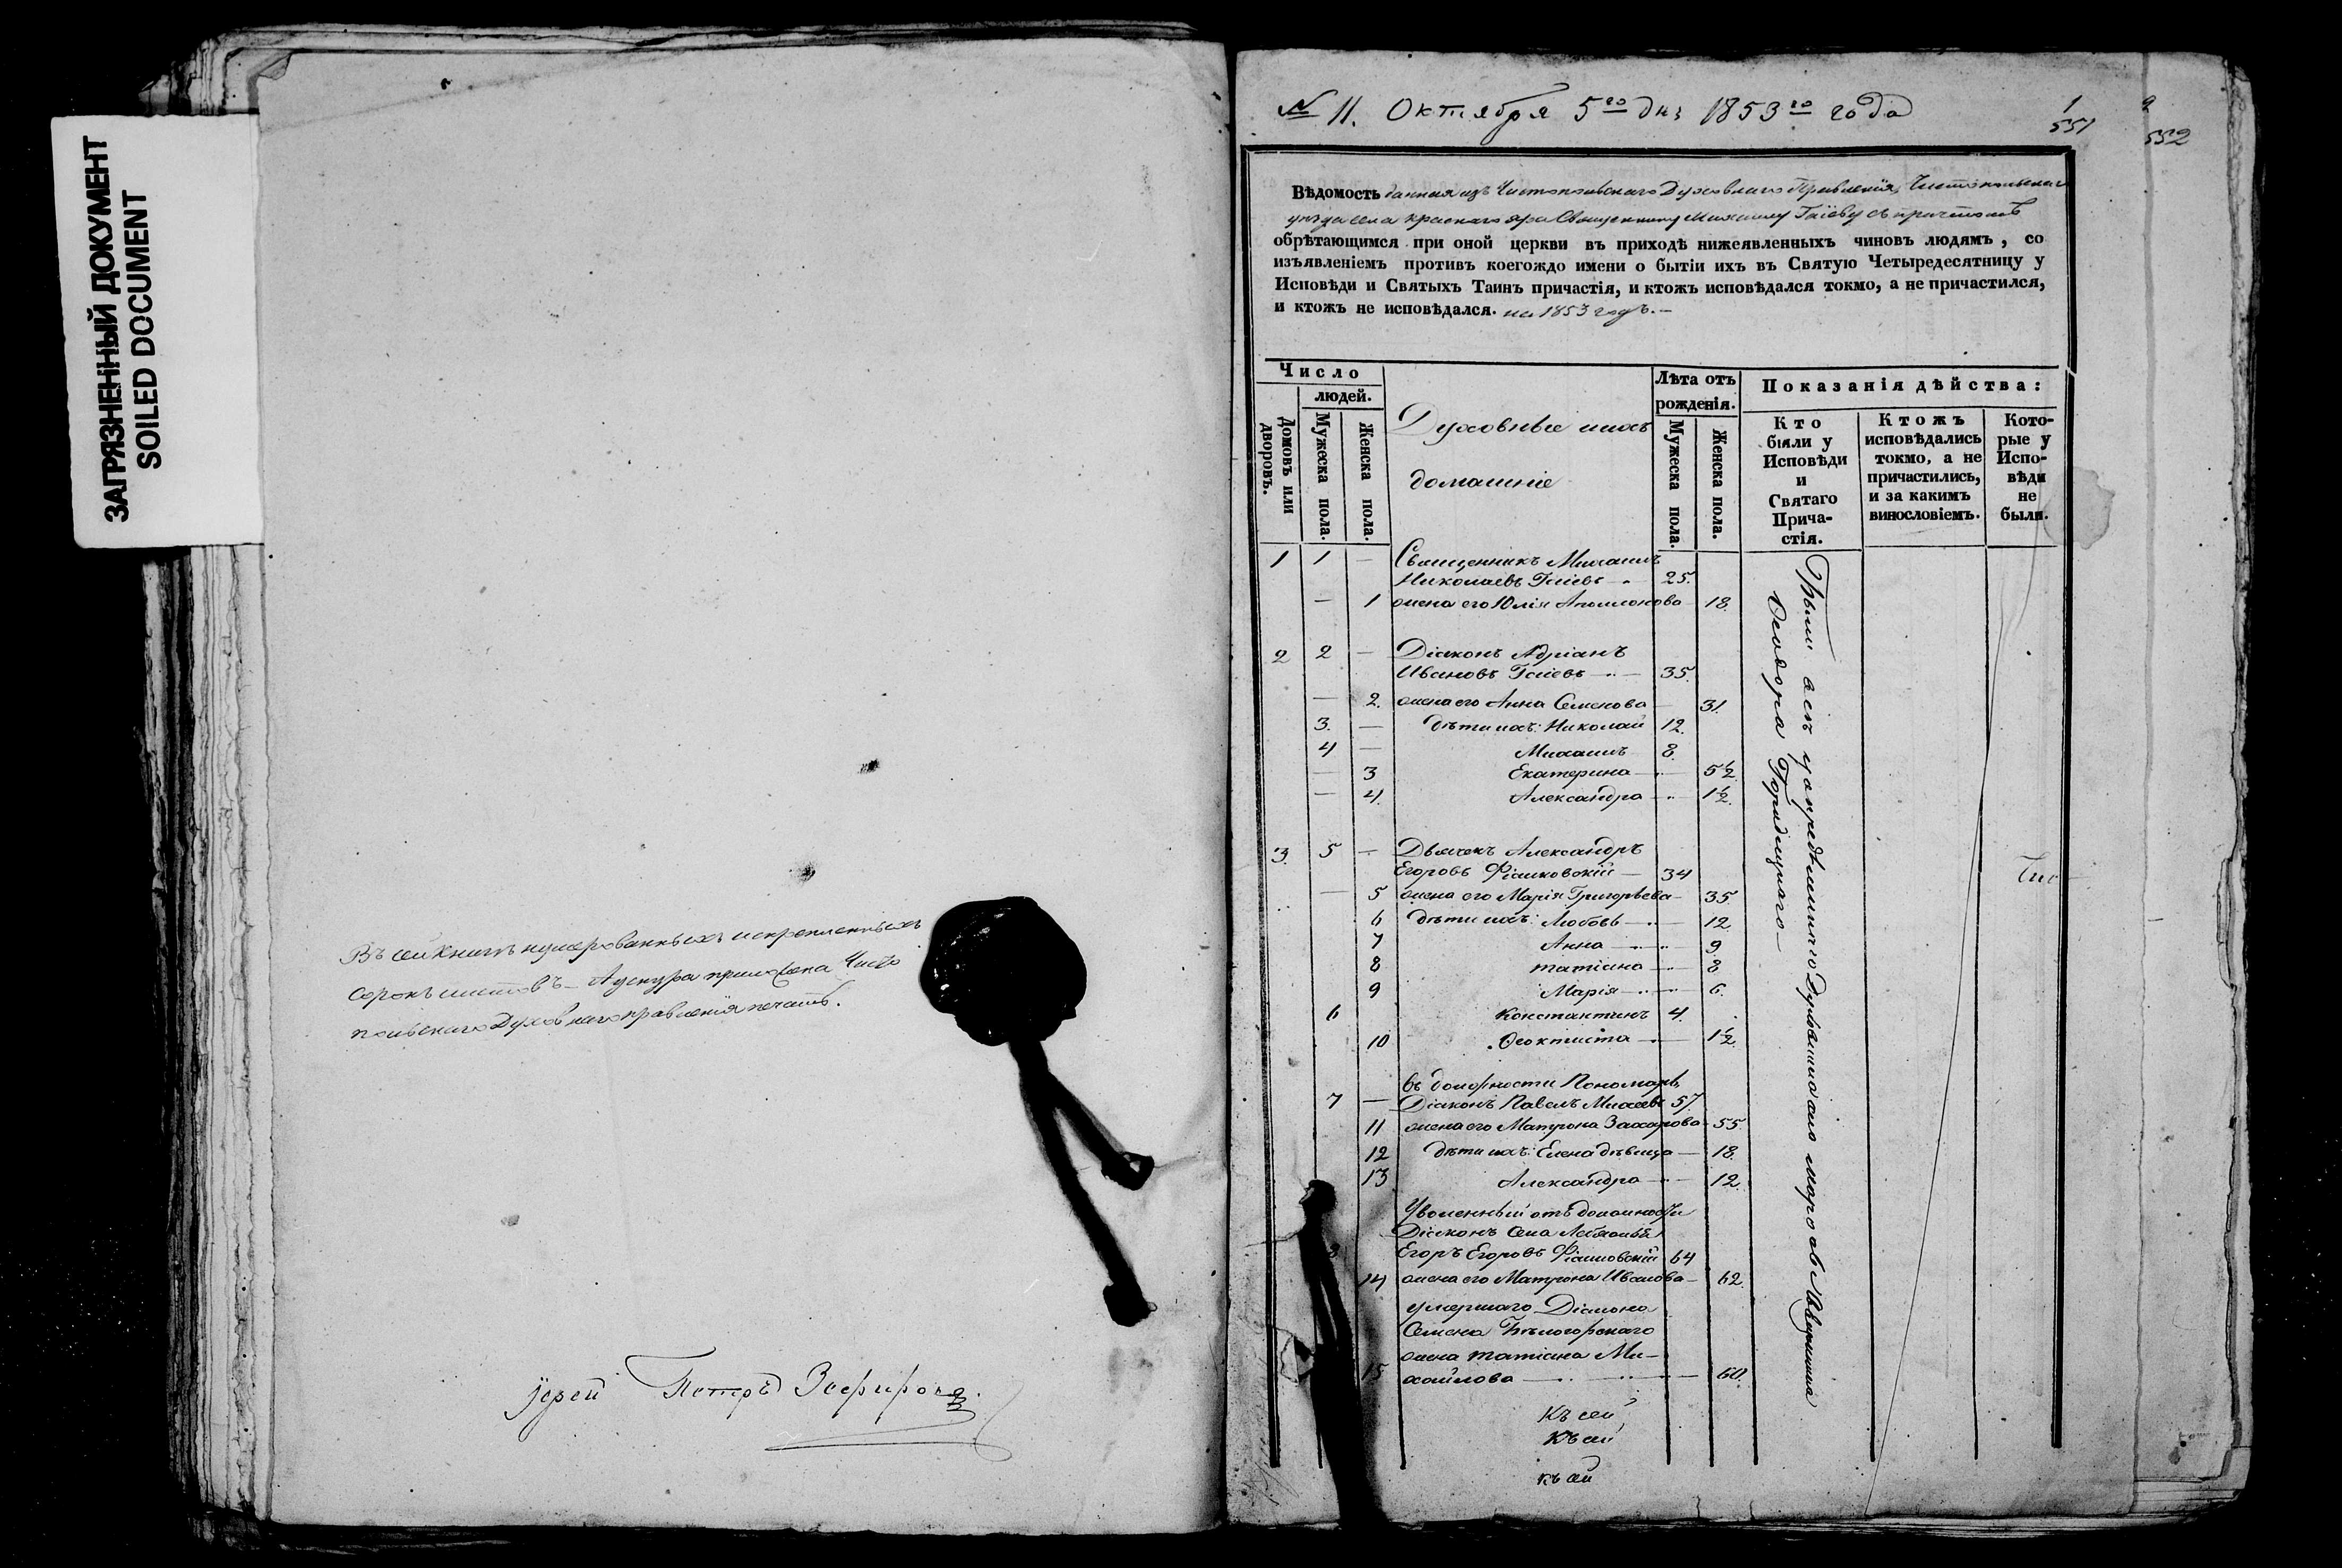 ЗАГРЯЗНЕННЫЙ ДОКУМЕНТ
SOILED DOCUMENT
Въ сей книгѣ нумерованныхъ и скрепленныхъ
сорокъ листовъ — Аукнура приложена Чисто
польскаго Духовнаго правленія печать.
Іерей Петръ Зефировъ.
№ 11. Октября 5го дня 1853го года
1
551
2
552
Вѣдомость данная изъ Чистопольскаго Духовнаго Правленія, Чистопольскаго
уѣзда села Краснаго яра Священнику Михаилу Гаіеву съ причтомъ
обрѣтающимся при оной церкви въ приходѣ нижеявленныхъ чиновъ людямъ, со
изъявленіемъ противъ коегождо имени о бытіи ихъ въ Святую Четыредесятницу у
Исповѣди и Святыхъ Таинъ причастія, и ктожъ исповѣдался токмо, а не причастился,
и ктожъ не исповѣдался. на 1853 годъ.—
Число
людей.
Домовъ или дворовъ.
Мужеска пола.
Женска пола.
Духовные и ихъ
домашніе
Лѣта отъ
рожденія.
Мужеска пола.
Женска пола.
Показанія дѣйства:
Кто
были у
Исповѣди
и
Святаго
Прича-
стія.
Ктожъ
исповѣдались
токмо, а не
причастились,
и за какимъ
винословіемъ.
Кото-
рые у
Испо-
вѣди
не
были.
1 1 — Священникъ Михаилъ
Николаевъ Гаіевъ 25.
— 1 жена его Юлія Аполлонова 18.
2 2 — Діаконъ Адріанъ
Ивановъ Гаіевъ — 35.
— 2. жена его Анна Семенова — 31.
3. — дѣти ихъ: Николай 12.
4 — Михаилъ 8.
— 3 Екатерина — 5½
— 4. Александра — 1½.
3. 5 — Дьячекъ Александръ
Егоровъ Фіалковскій — 34
— 5 жена его Марія Григорьева — 35
6 дѣти ихъ: Любовь — 12
7 Анна — 9
8 Татіана — 8
9 Марія — 6.
6 Константинъ 4.
10 Ѳеоктиста — 1½
въ должности Пономаря
7 — Діаконъ Павелъ Михеевъ 57.
11 жена его Матрона Захарова 55
12 дѣти ихъ: Елена дѣвица — 18.
13 Александра — 12
Уволенный отъ должности
Діаконъ села Лебяжья
8 Егоръ Егоровъ Фіалковскій 64
14 жена его Матрона Иванова — 62
умершаго Діакона
Семена Бѣлогорскаго
жена Татіана Ми-
15 хайлова — 60.
Къ сей
Къ сей
къ сей
Были всѣ